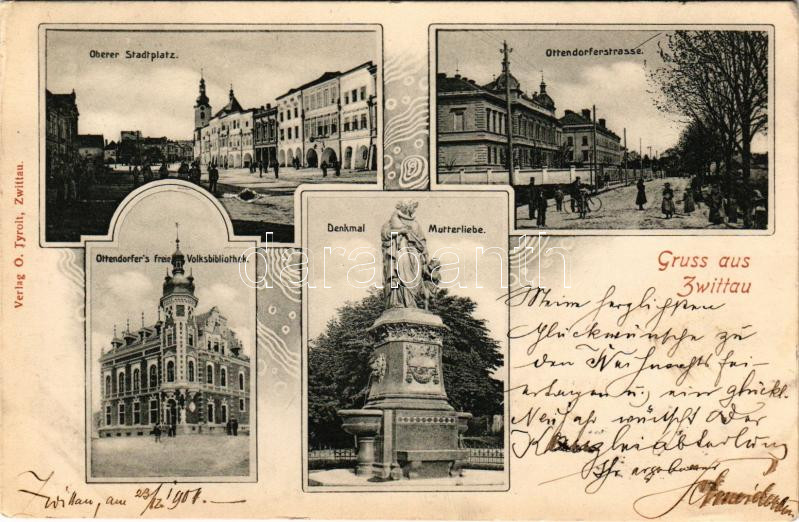 Oberer Stadtplatz.
Ottendorferstrasse.
Ottendorfer's freie Volksbibliothek.
Denkmal Mutterliebe.
Verlag O. Tyrolt, Zwittau.
darabanth.com
Gruss aus
Zwittau
Meine herzlichsten
Glückwünsche zu
den Weihnachtsfei-
ertagen u. ein glückl.
Neujahr wünscht der
Kanzleiabteilung
Ihr ergebener
Zwittau, am 23/12 1901.